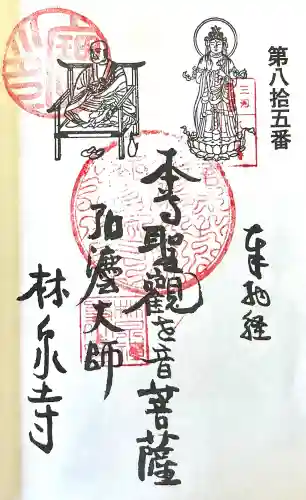 第八拾五番
奉納経
本尊聖觀世音菩薩
弘法大師
林泉寺